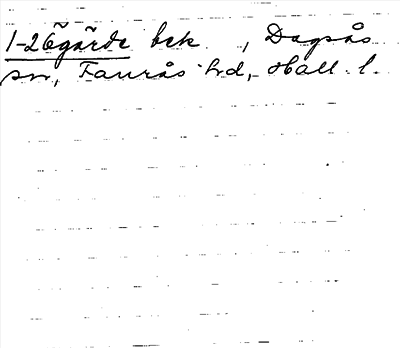 1-2 Ögärde bek , Dagsås
sn, Faurås hd, Hall. l.